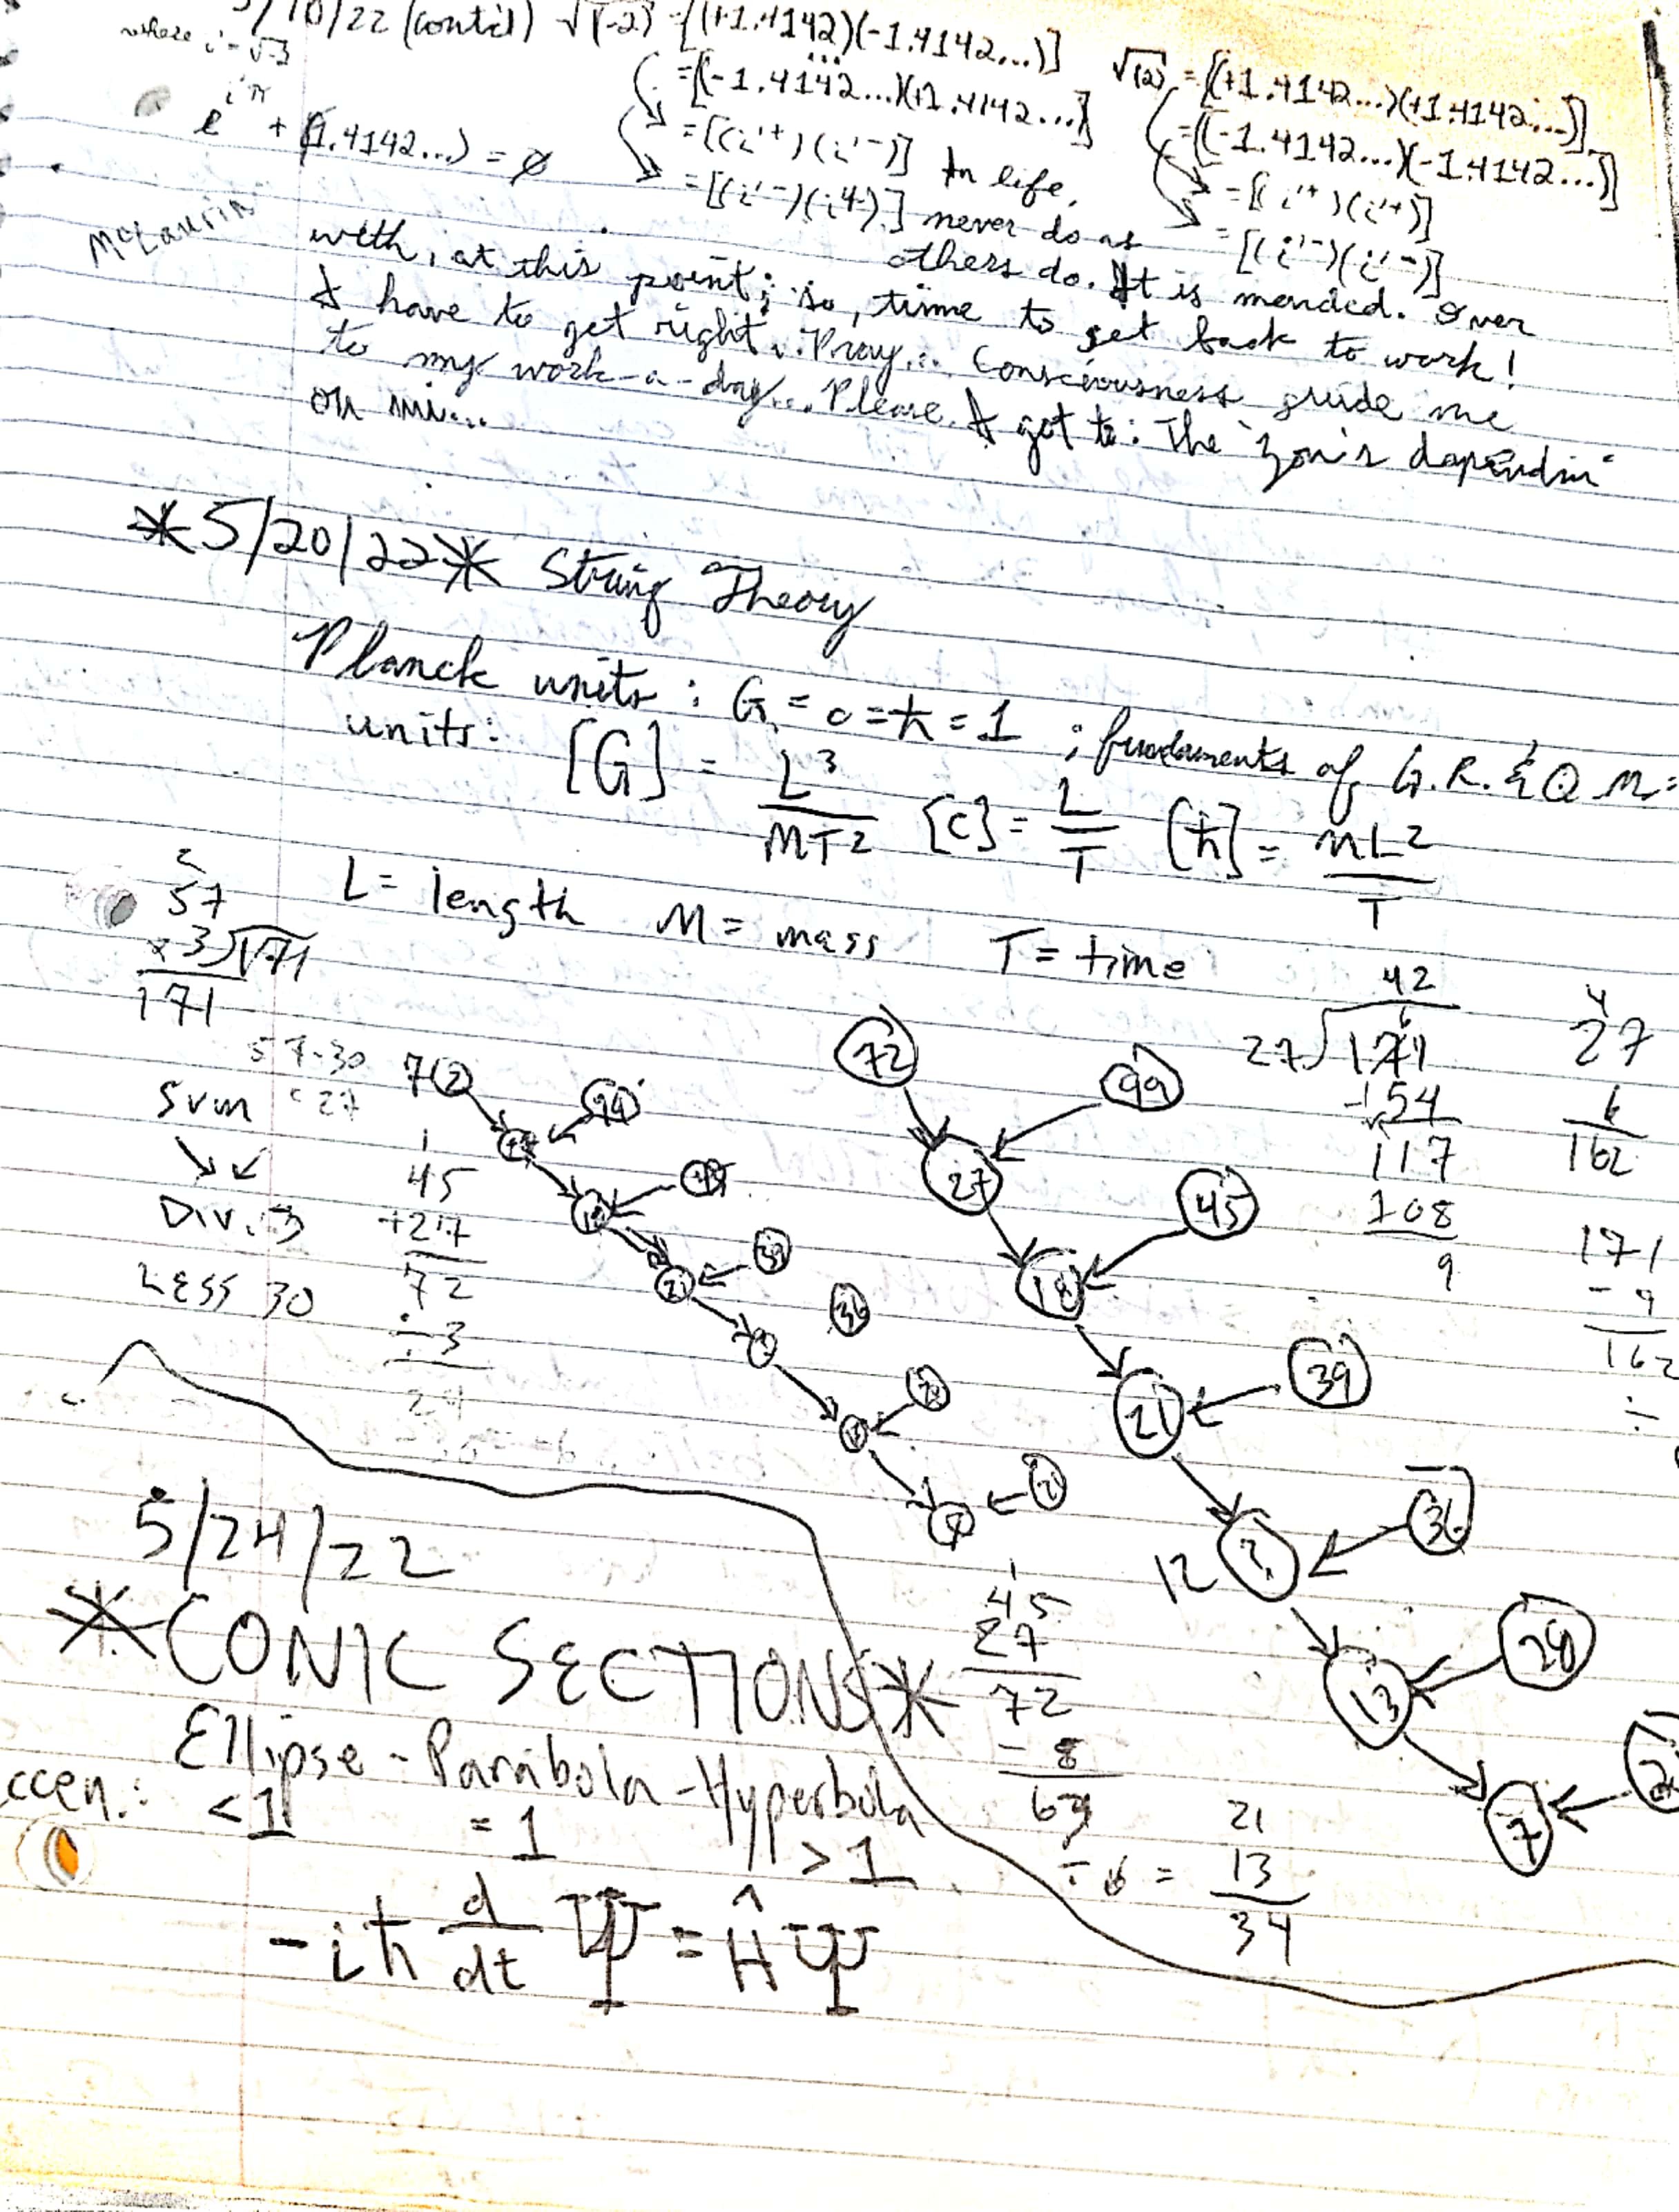 /10/22 (cont'd) √(-2) = [(+1.4142)(-1.4142...)]
where i = √-3
= [(-1.4142...)(+1.4142...)]
√(2) = [(+1.4142...)(+1.4142...)]
e^iπ + (1.4142...) = ∅
= [(i'+)(i'-)] In life,
= [(-1.4142...)(-1.4142...)]
= [(i'-)(i'+)] never do as
= [(i'+)(i'+)]
McLaurin
others do. It is mended. Over
= [(i'-)(i'-)]
with, at this point; so, time to get back to work!
I have to get right. Pray... Consciousness guide me
to my work-a-day... Please. I got to: The
on mi...
*5/20/22* String Theory
Planck units: G = c = ħ = 1 ; fundaments of G.R. & Q M:
units: [G] = L³/MT² [c] = L/T [ħ] = ML²/T
L = length M = mass T = time
2
57
×3 √171
171
57-30
= 27
Sum
↘ ↙
Div. 3
Less 30
1
45
+27
72
÷3
24
7 2
39
36
72
99
27
45
18
39
21
36
12 ?
28
13
7
42
27 √171
-54
117
108
9
4
27
6
162
171
-9
162
÷
5/24/22
*CONIC SECTIONS*
Ellipse - Parabola - Hyperbola
ccen.: <1 = 1 > 1
-iħ d/dt Ψ = ĤΨ
1
45
27
72
- 8
63
÷ 6 =
21
13
34